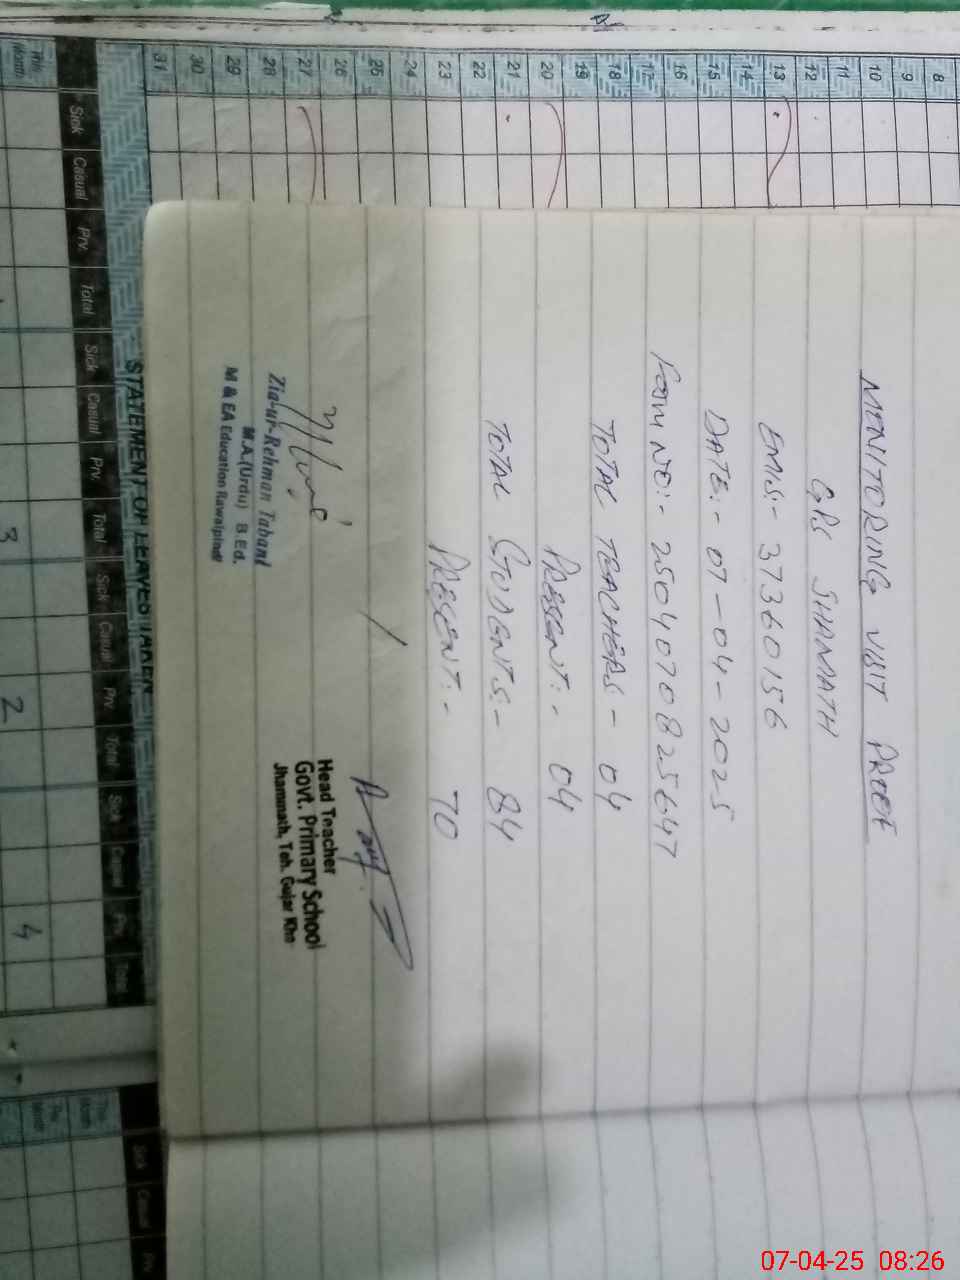 MONITORING VISIT PROOF
GPS JHAMMATH
EMIS:- 37360156
DATE:- 07-04-2025
FORM NO:- 2504070825647
TOTAL TEACHERS - 04
PRESENT:- 04
TOTAL STUDENTS:- 84
PRESENT:- 70
Zia-ur-Rehman Tabani
M.A.(Urdu) B.Ed.
M & EA Education Rawalpindi
Head Teacher
Govt. Primary School
Jhammath, Teh. Gujar Khan
STATEMENT OF LEAVES TAKEN
8 9 10 11 12 13 14 15 16 17 18 19 20 21 22 23 24 25 26 27 28 29 30 31
Sick Casual Prv. Total Sick Casual Prv. Total Sick Casual Prv. Total Sick Casual Prv. Total
This Month
3 2 4
Sick Casual Prv
07-04-25 08:26